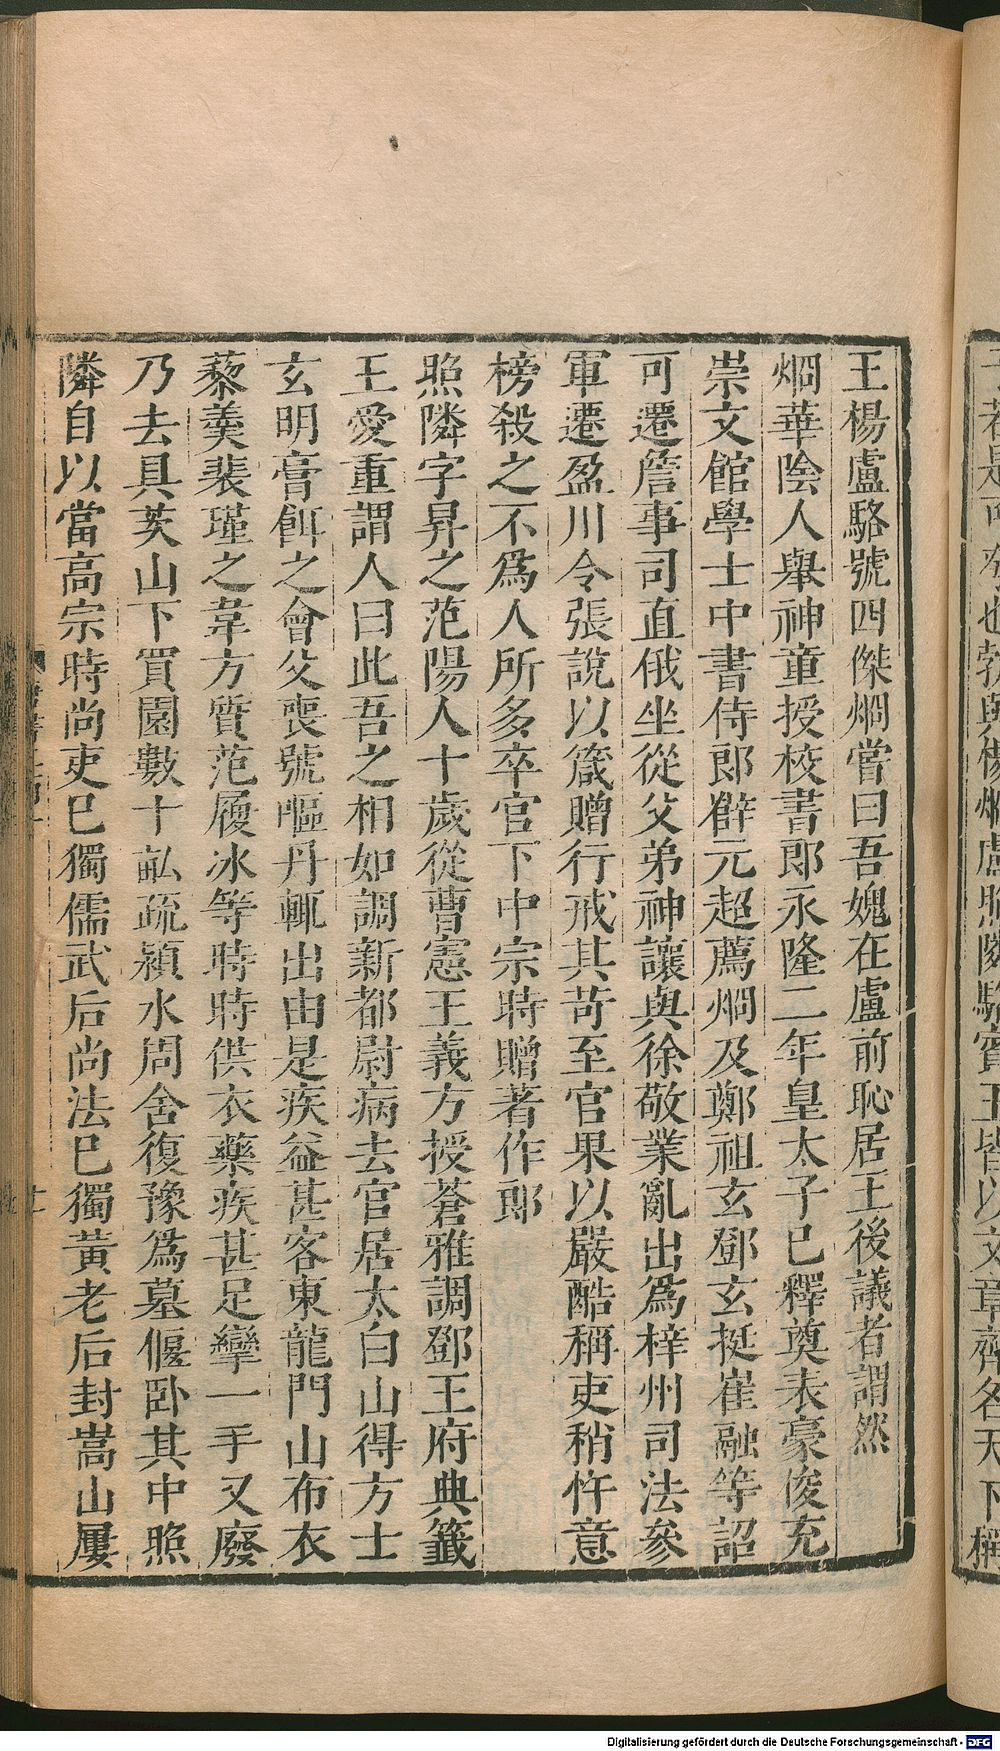 王楊盧駱號四傑烱嘗曰吾媿在盧前恥居王後議者謂然
烱華陰人舉神童授校書郎永隆二年皇太子已釋奠表豪俊充
崇文館學士中書侍郎薛元超薦烱及鄭祖玄鄧玄挺崔融等詔
可遷詹事司直俄坐從父弟神讓與徐敬業亂出爲梓州司法參
軍遷盈川令張說以箴贈行戒其苛至官果以嚴酷稱吏稍忤意
榜殺之不爲人所多卒官下中宗時贈著作郎
照隣字昇之范陽人十歲從曹憲王義方授蒼雅調鄧王府典籤
王愛重謂人曰此吾之相如調新都尉病去官居太白山得方士
玄明膏餌之會父喪號嘔丹輒出由是疾益甚客東龍門山布衣
藜羹裴瑾之韋方質范履冰等時時供衣藥疾甚足攣一手又廢
乃去具茨山下買園數十畝疏潁水周舍復豫爲墓偃卧其中照
隣自以當高宗時尚吏已獨儒武后尚法已獨黃老后封嵩山屢
Digitalisierung gefördert durch die Deutsche Forschungsgemeinschaft - DFG